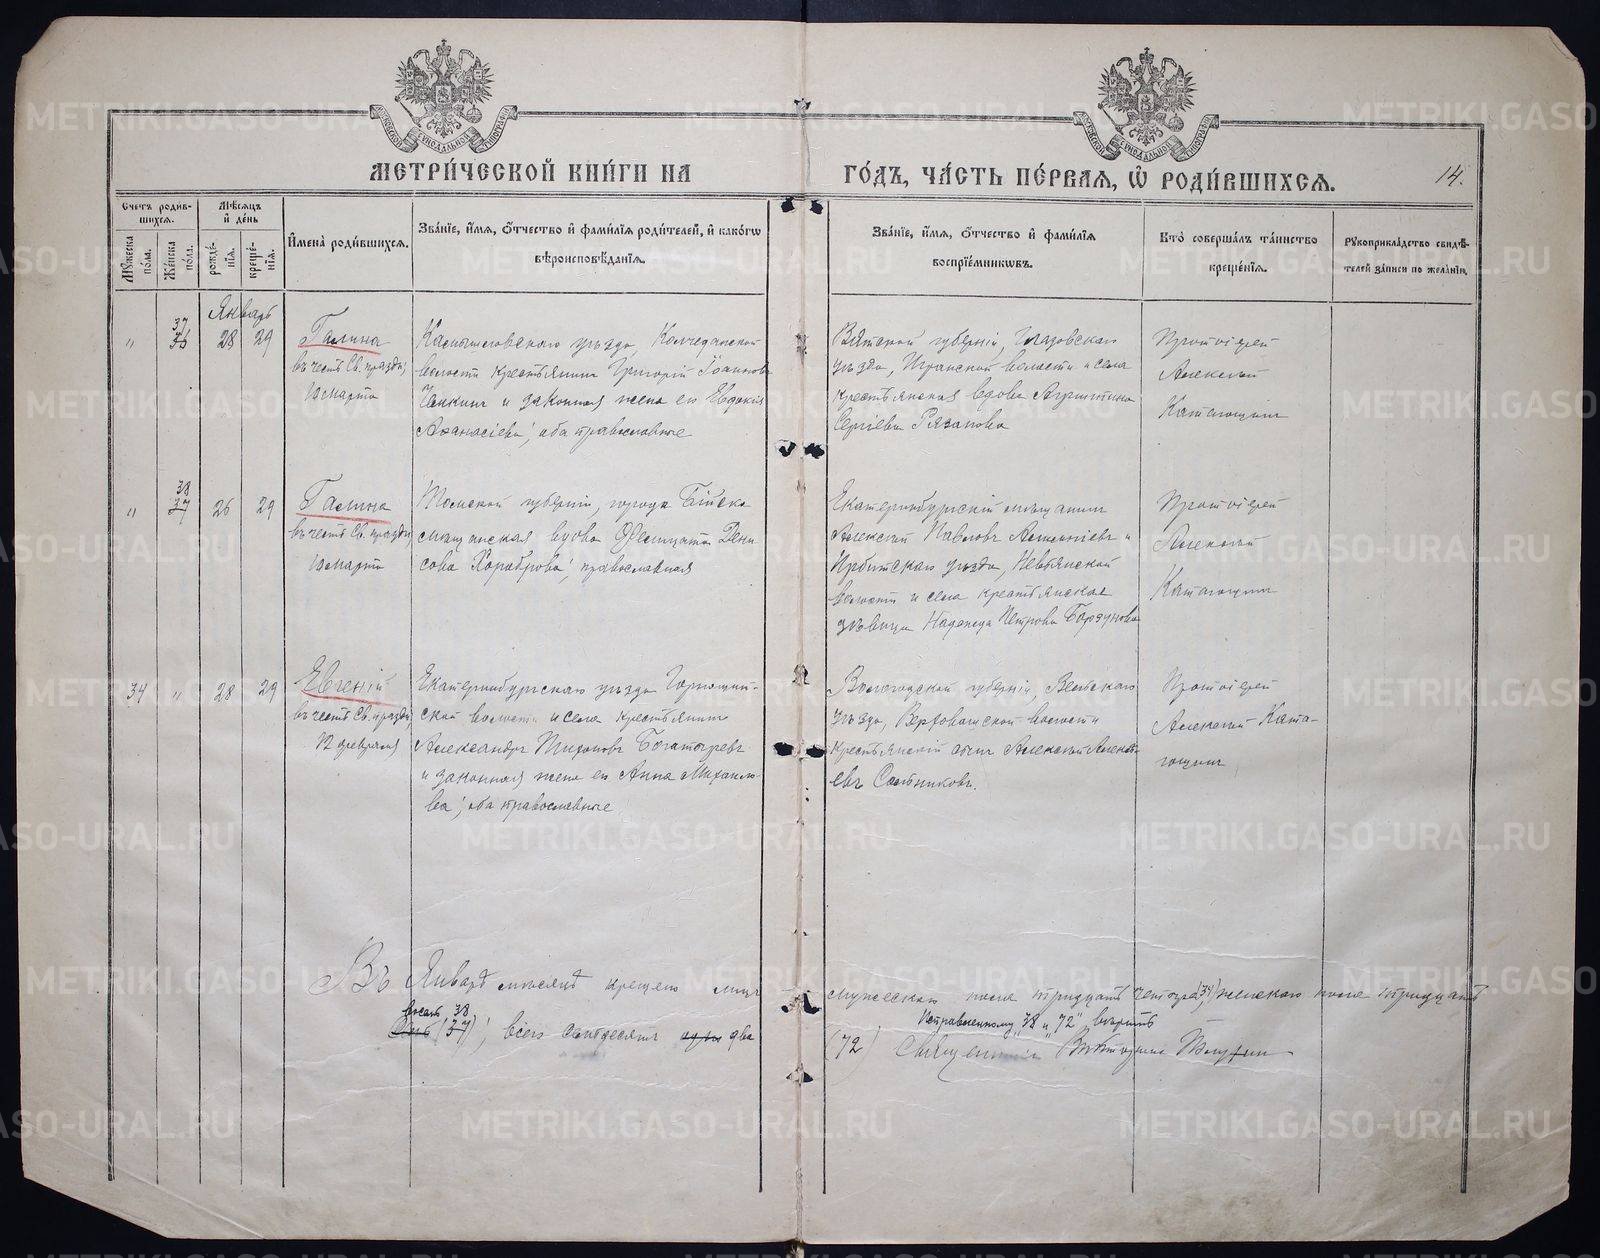 МЕТРИЧЕСКОЙ КНИГИ НА
ГОДЪ, ЧАСТЬ ПЕРВАЯ, Ѡ РОДИВШИХСЯ.
14.
Счетъ родив-
шихся.
Мужеска
пола.
Женска
пола.
Мѣсяцъ
и день
рожде-
нія.
креще-
нія.
Имена родившихся.
Званіе, имя, отчество и фамилія родителей, и какогѡ
вѣроисповѣданія.
Званіе, имя, отчество и фамилія
воспріемникѡвъ.
Кто совершалъ таинство
крещенія.
Рукоприкладство свидѣ-
телей записи по желанію.
Январь
" 37 36 28 29
Галина
въ честь Св. праздн.
10 марта
Камышловскаго уѣзда, Колчеданской
волости крестьянинъ Григорій Іоанновъ
и законная жена его Евдокія
Аѳанасіева; оба православные
Вятской губерніи, Глазовскаго
уѣзда, волости и села
крестьянская вдова Агриппина
Сергіева Рязанова
Протоіерей
Алексій
" 38 37 26 29
Галина
въ честь Св. праздн.
10 марта
Томской губерніи, города Бійска
мѣщанская вдова Фелицата Дени
сова Храброва; православная
Екатеринбургскій мѣщанинъ
Алексій Павловъ и
Ирбитскаго уѣзда, Невьянской
волости и села крестьянская
дѣвица Надежда Петрова
Протоіерей
Алексій
34 " 28 29
Евгеній
въ честь Св. праздн.
12 февраля
Екатеринбургскаго уѣзда Горнощит-
ской волости и села крестьянинъ
Александръ Тихоновъ Богатыревъ
и законная жена его Анна Михаило-
ва; оба православные
Вологодской губерніи, Вельскаго
уѣзда, Верховажской волости
крестьянскій сынъ Алексій Алексѣ
евъ Сотниковъ.
Протоіерей
Алексій
Въ Январѣ мѣсяцѣ крещено лицъ
мужескаго пола тридцать четыре (34) женскаго пола тридцать
восемь 38
(37); всего семьдесятъ два
Исправленному „38 и „72" вѣрить
(72) Священникъ